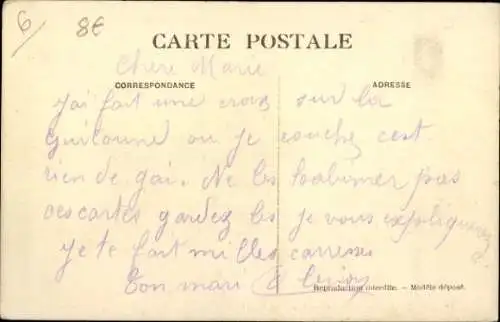 6/ 8€
CARTE POSTALE
Chère Marie
CORRESPONDANCE ADRESSE
j'ai fait une croix sur la
guitoune ou je couche c'est
rien de gai. Ne les habimer pas
ces cartes gardez les je vous expliquerez
je te fait milles caresses
Ton mari
Reproduction interdite. — Modèle déposé.